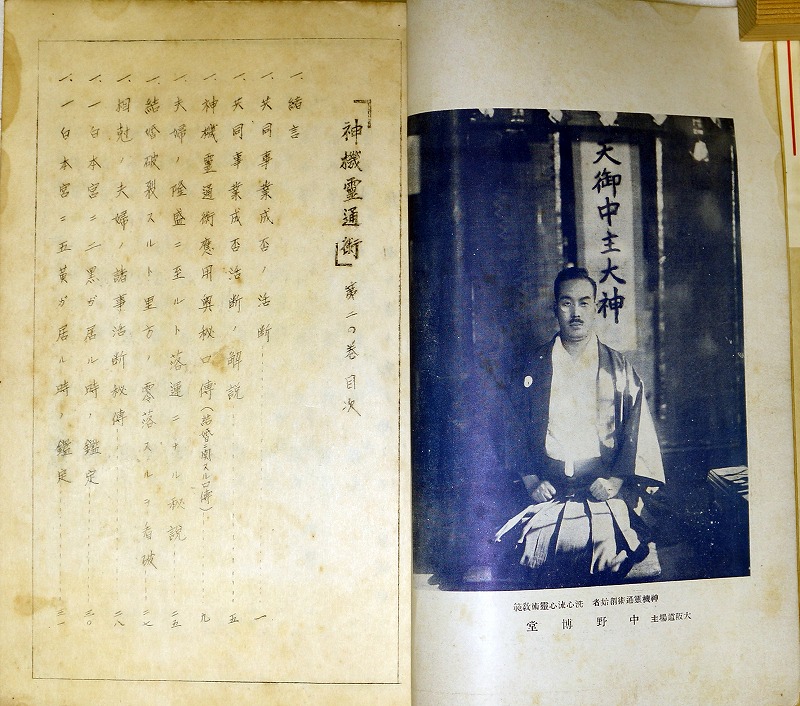 天御中主大神
神機靈通術創始者 洗心流心靈術教範
大阪道場主 中野博堂
「神機靈通術」 第二の巻 目次
一、緒言
一、共同事業成否ノ活断 一
一、共同事業成否活断ノ解説 五
一、神機靈通術應用奥秘口傳(結婚ニ関スル口傳) 九
一、夫婦ノ隆盛ニ至ルト落運ニナル秘説 二五
一、結婚破裂スルト里方ノ零落スルヲ看破 二七
一、相尅ノ夫婦ノ諸事活断秘傳 二八
一、一白本宮ニ二黒ガ居ル時ノ鑑定 三〇
一、一白本宮ニ五黄ガ居ル時ノ鑑定 三一